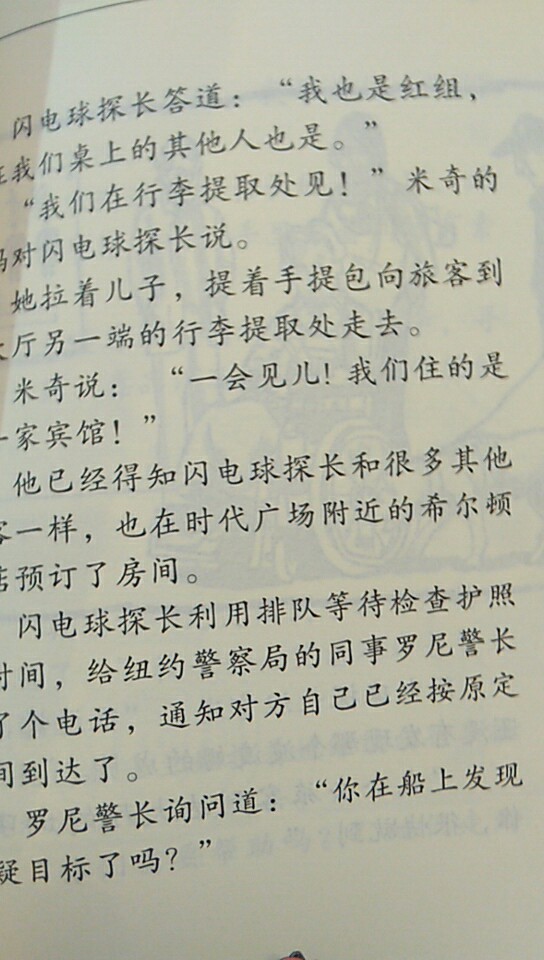 闪电球探长答道：“我也是红组，
我们桌上的其他人也是。”
“我们在行李提取处见！”米奇的
对闪电球探长说。
她拉着儿子，提着手提包向旅客到
厅另一端的行李提取处走去。
米奇说：“一会见儿！我们住的是
一家宾馆！”
他已经得知闪电球探长和很多其他
客一样，也在时代广场附近的希尔顿
店预订了房间。
闪电球探长利用排队等待检查护照
时间，给纽约警察局的同事罗尼警长
了个电话，通知对方自己已经按原定
间到达了。
罗尼警长询问道：“你在船上发现
疑目标了吗？”